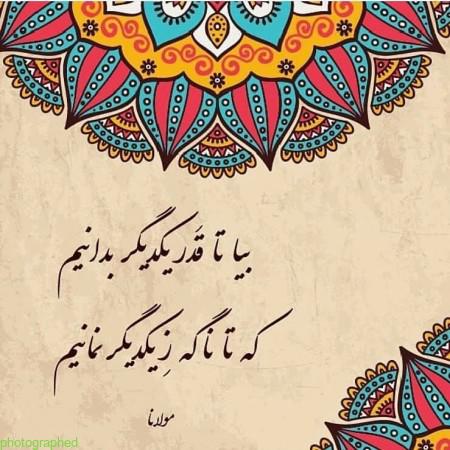 بیا تا قَدر یکدیگر بدانیم
که تا ناگه زِ یکدیگر نمانیم
مولانا
photographed